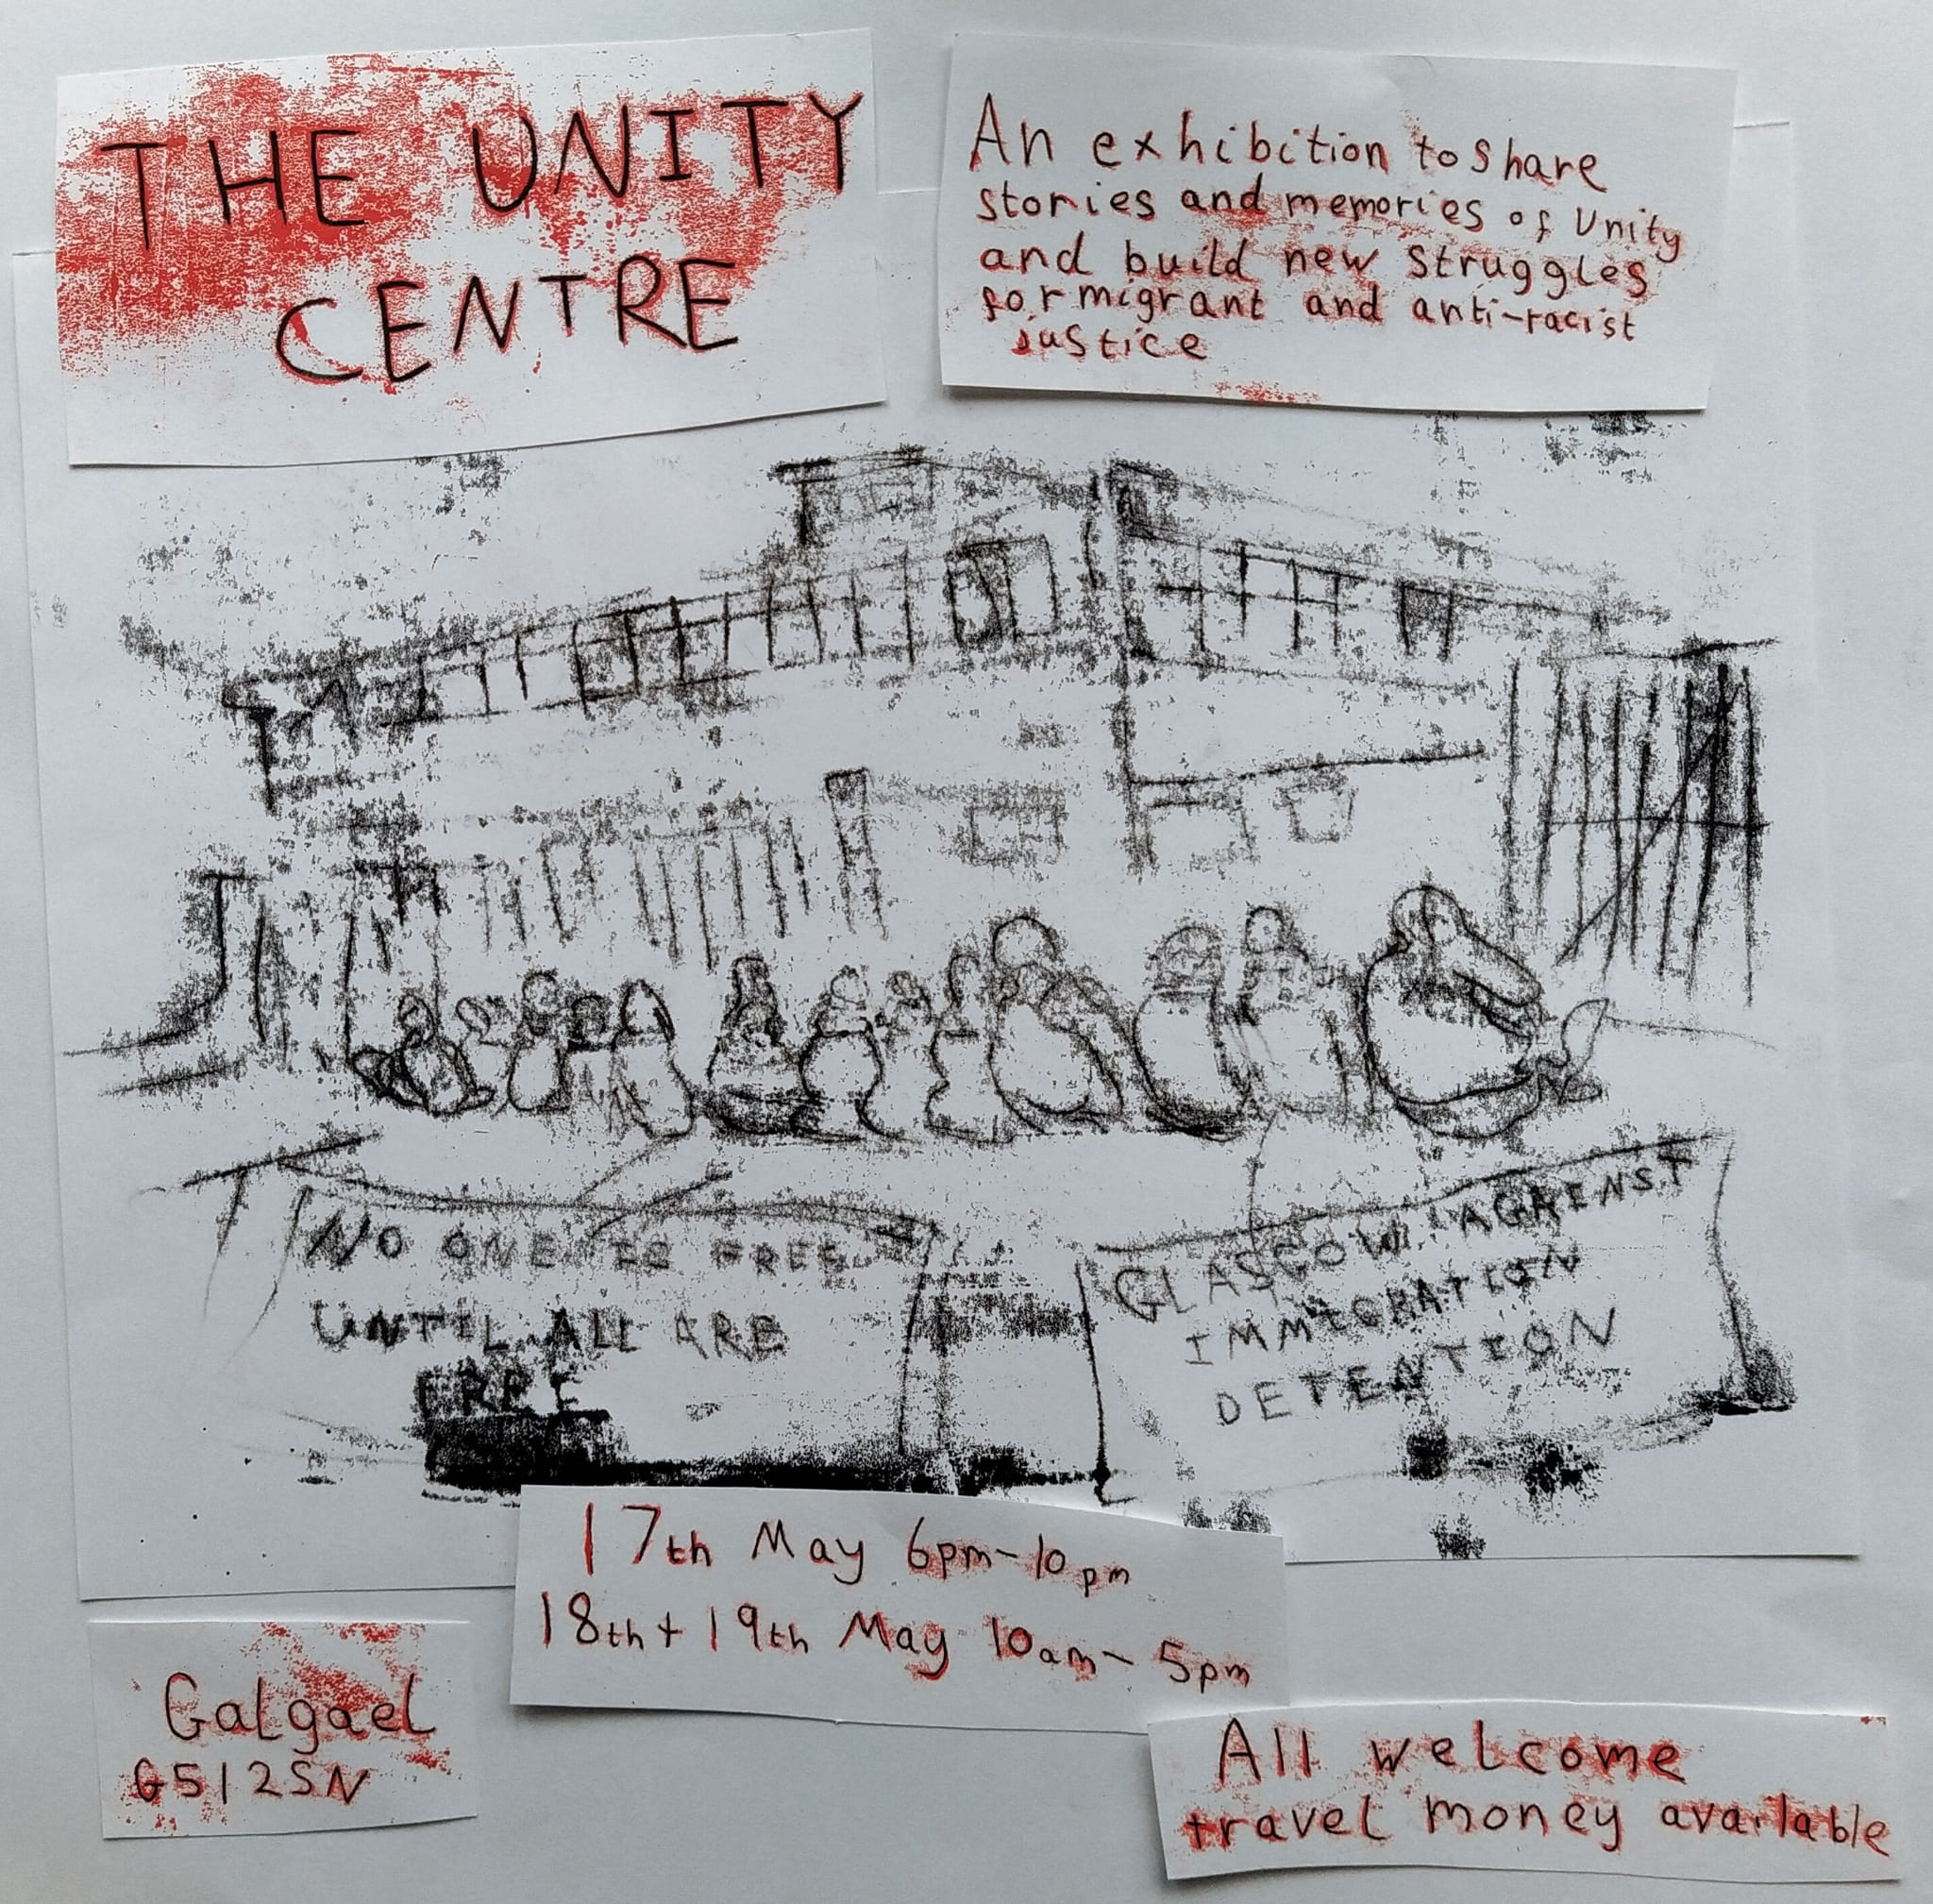 THE UNITY
CENTRE
An exhibition to share
stories and memories of Unity
and build new struggles
for migrant and anti-racist
justice
NO ONE IS FREE
UNTIL ALL ARE
FREE
GLASGOW AGAINST
IMMIGRATION
DETENTION
17th May 6pm-10pm
18th + 19th May 10am- 5pm
Galgael
G512SN
All welcome
travel money available